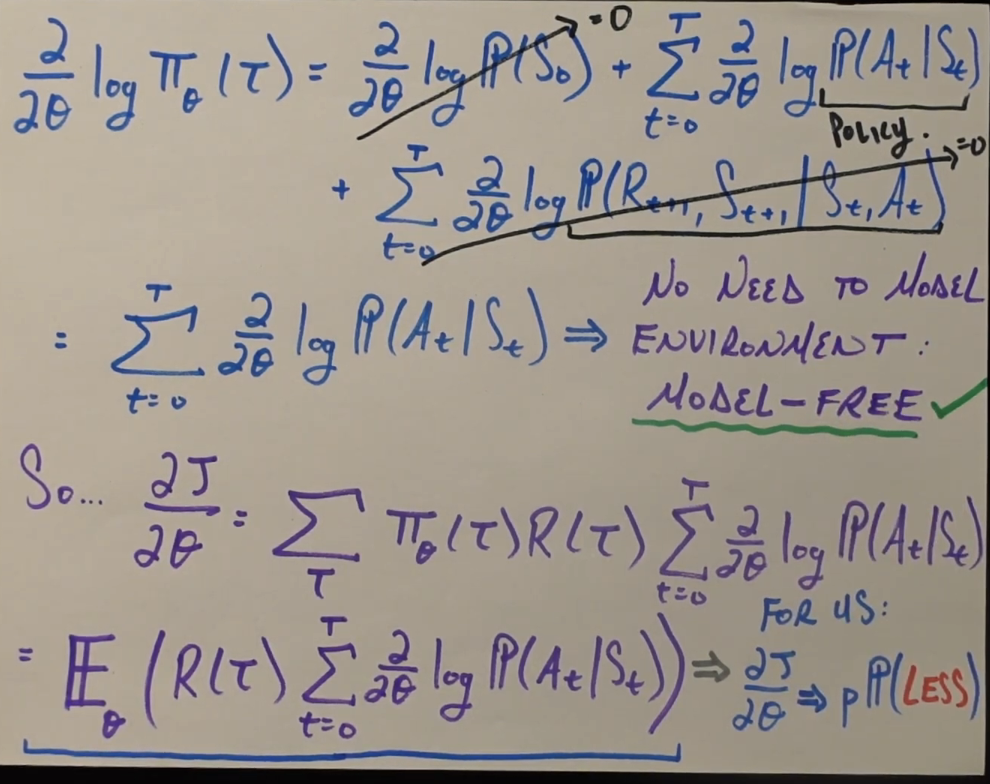 ∂/∂θ log π_θ(τ) = ∂/∂θ log ℙ(S₀) + Σ_{t=0}^{T} ∂/∂θ log ℙ(A_t|S_t)
=0
POLICY.
+ Σ_{t=0}^{T} ∂/∂θ log ℙ(R_{t+1}, S_{t+1}|S_t, A_t)
=0
= Σ_{t=0}^{T} ∂/∂θ log ℙ(A_t|S_t) ⇒ NO NEED TO MODEL
ENVIRONMENT:
MODEL-FREE ✓
So... ∂J/∂θ = Σ_τ π_θ(τ)R(τ) Σ_{t=0}^{T} ∂/∂θ log ℙ(A_t|S_t)
FOR US:
= 𝔼_θ(R(τ) Σ_{t=0}^{T} ∂/∂θ log ℙ(A_t|S_t)) ⇒ ∂J/∂θ ⇒ pℙ(LESS)